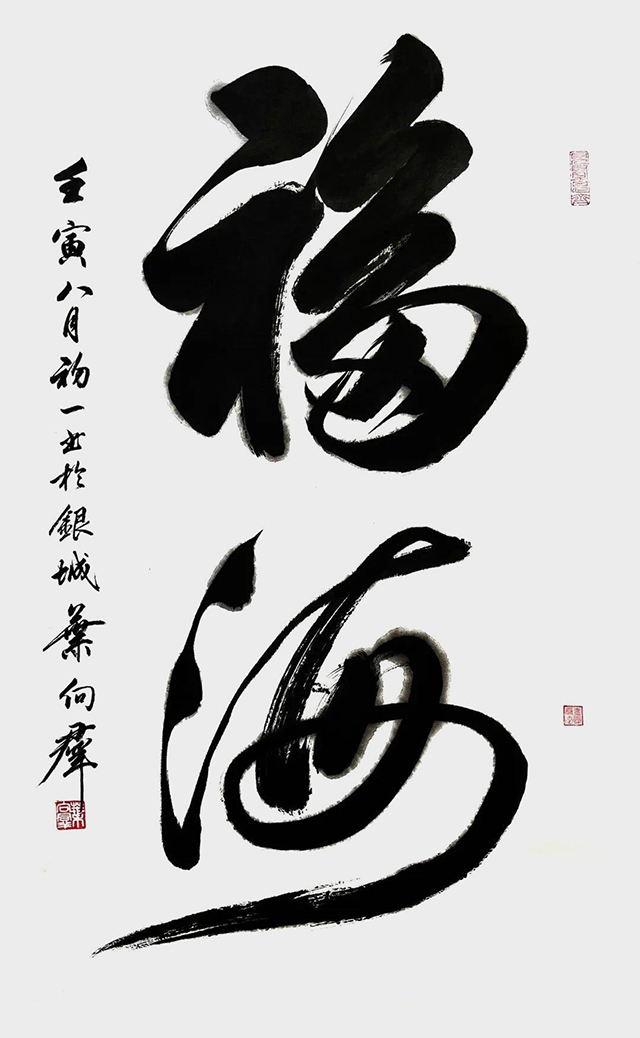 福海
壬寅八月初一书於銀城葉向群